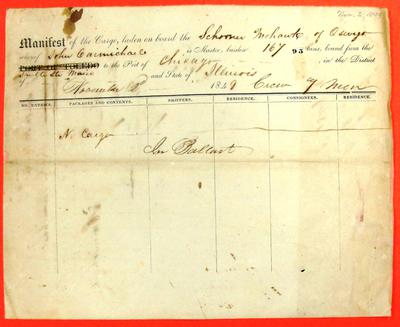 Nov. 2, 1849
Manifest of the Cargo, laden on board the Schooner Mohawk of Oswego
whereof John Carmichael is Master, burden 167 95 tons, bound from the
PORT OF TOLEDO to the Port of Chicago , in the District
Sault Ste Marie and State of Illinois
November 2 1849 Crew 7 Men
NO. ENTRIES. PACKAGES AND CONTENTS. SHIPPERS. RESIDENCE. CONSIGNEES. RESIDENCE.
No Cargo
In Ballast